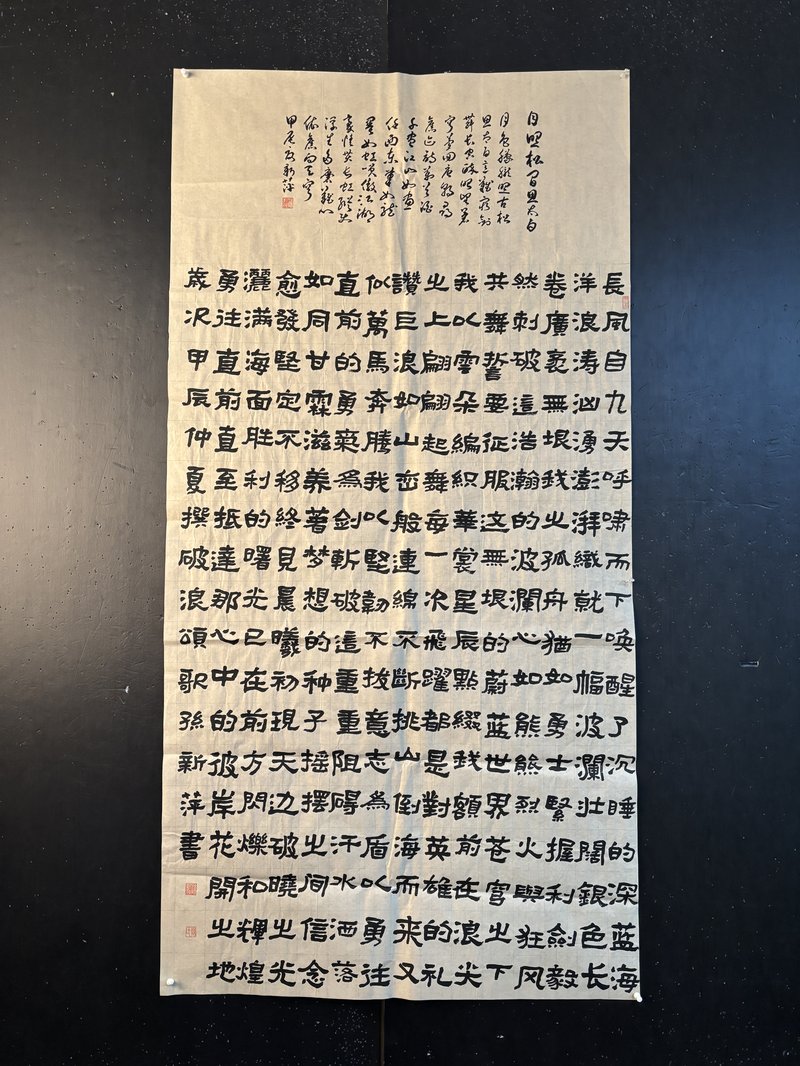 月照松間思太白
長風自九天呼嘯而下喚醒了沉睡的深蓝海
洋浪涛汹湧澎湃織就一幅波瀾壯闊銀色长
卷廣袤無垠我之孤舟猶如勇士緊握利劍毅
然刺破這浩瀚的波瀾心如熊熊烈火與狂风
共舞誓要征服这無垠的蔚蓝世界苍宫之下
我以雲朵編織華裳星辰點綴我額前在浪尖
之上翩翩起舞每一次飛躍都是對英雄的礼
讚巨浪如山峦般連綿不斷挑山倒海而来又
似萬馬奔騰我以堅韌不拔意志為盾以勇往
直前的勇氣為劍斬破這重重阻碍汗水洒落
如同甘霖滋养著梦想的种子摇摆之间信念
愈發堅定不移終見晨曦初現天边破曉之光
灑满海面胜利的曙光已在前方閃爍和輝煌
勇往直前直至抵達那心中的彼岸花開之地
歲次甲辰仲夏撰破浪頌歌孫新萍書